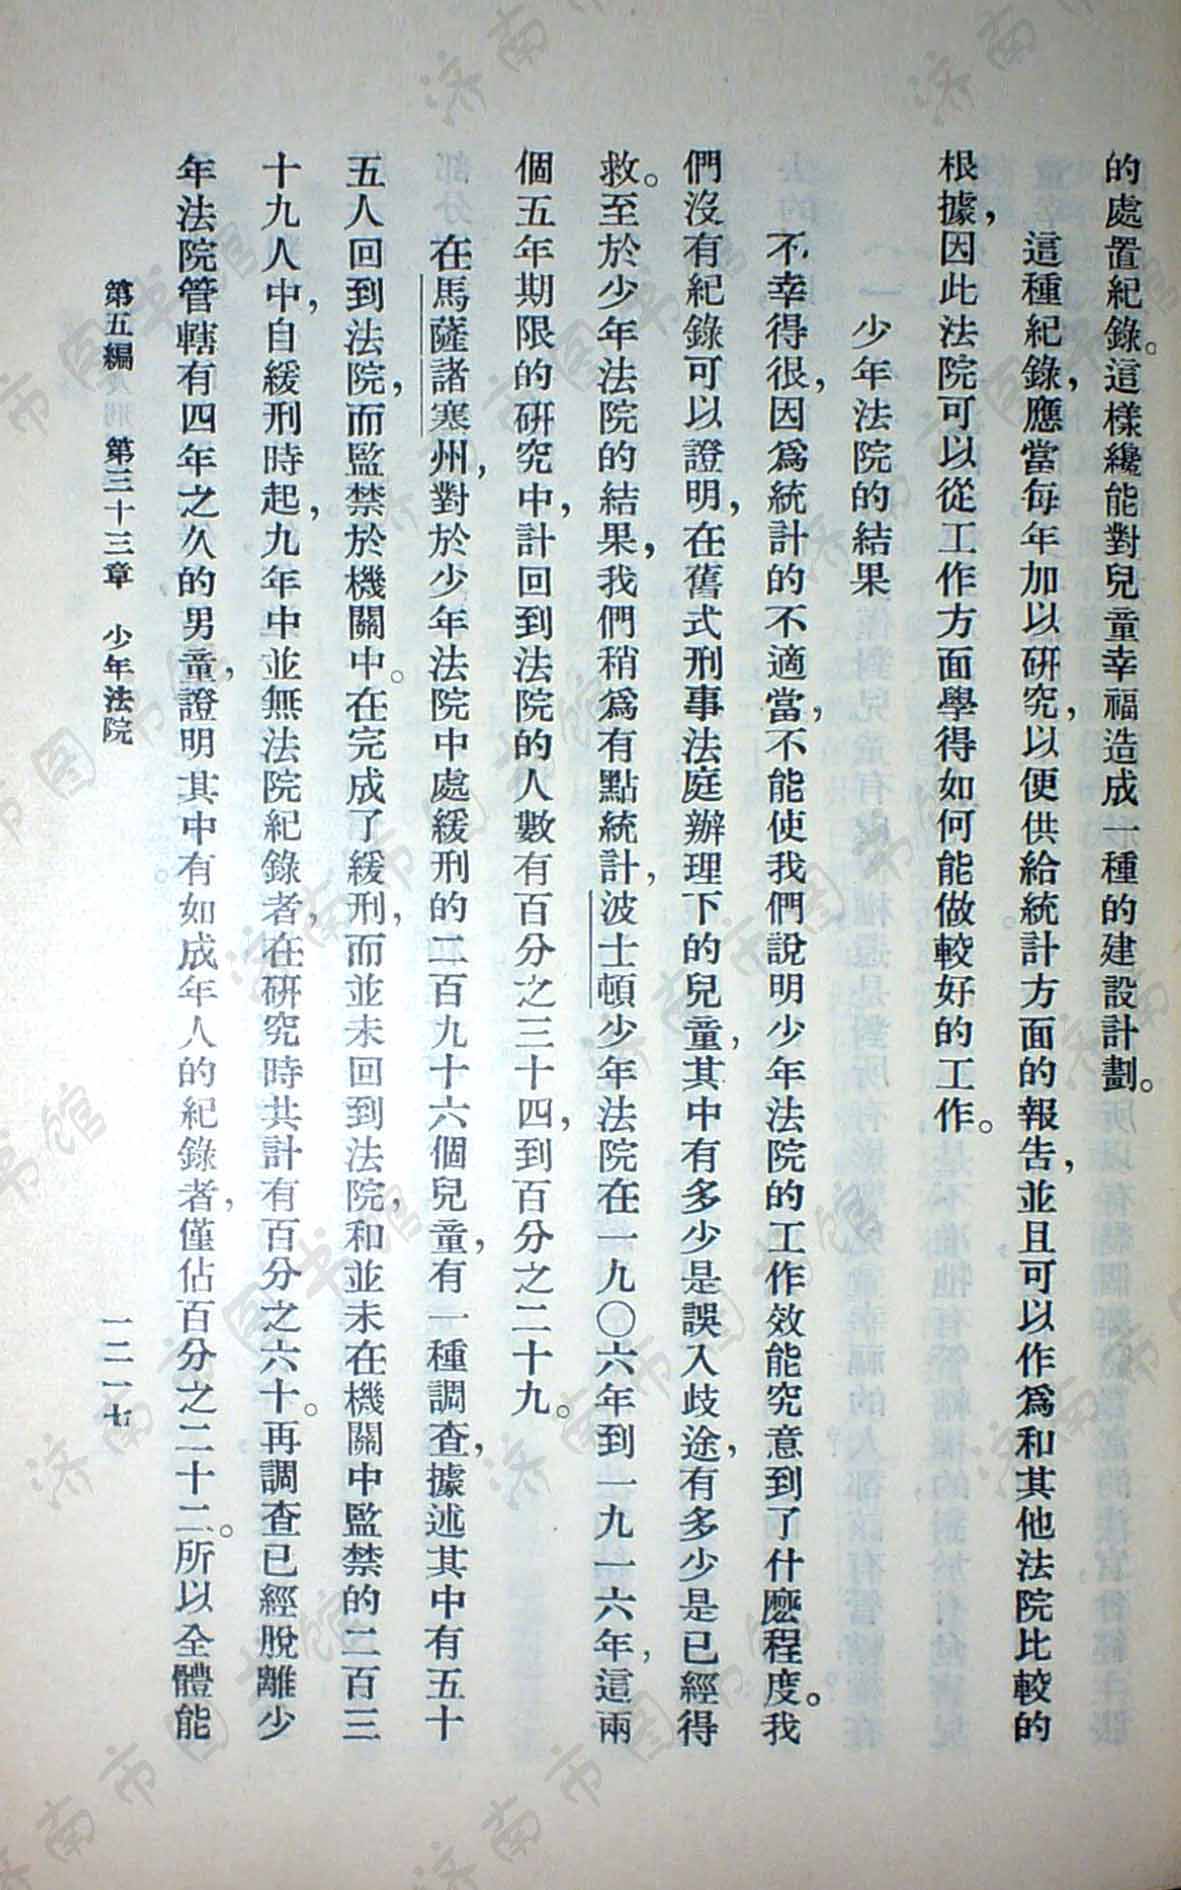 的處置紀錄。這樣纔能對兒童幸福造成一種的建設計劃。
這種紀錄，應當每年加以研究，以便供給統計方面的報告，並且可以作爲和其他法院比較的
根據，因此法院可以從工作方面學得如何能做較好的工作。
一　少年法院的結果
不幸得很，因爲統計的不適當，不能使我們說明少年法院的工作效能究意到了什麽程度。我
們沒有紀錄可以證明，在舊式刑事法庭辦理下的兒童，其中有多少是誤入歧途，有多少是已經得
救。至於少年法院的結果，我們稍爲有點統計，波士頓少年法院在一九〇六年到一九一六年，這兩
個五年期限的研究中，計回到法院的人數有百分之三十四，到百分之二十九。
在馬薩諸寒州，對於少年法院中處緩刑的二百九十六個兒童，有一種調查，據述其中有五十
五人回到法院，而監禁於機關中。在完成了緩刑，而並未回到法院，和並未在機關中監禁的二百三
十九人中，自緩刑時起，九年中並無法院紀錄者，在研究時共計有百分之六十。再調查已經脫離少
年法院管轄有四年之久的男童，證明其中有如成年人的紀錄者，僅佔百分之二十二。所以全體能
第五編　第三十三章　少年法院　一二一七
济南市图书馆